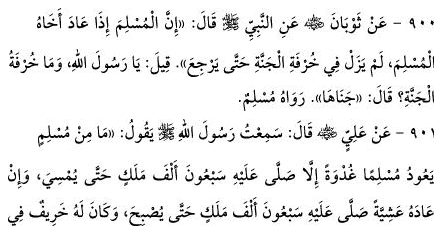 ٩٠٠ - عَنْ ثَوْبَانَ ﵁ عَنِ النَّبِيِّ ﷺ قَالَ: «إِنَّ الْمُسْلِمَ إِذَا عَادَ أَخَاهُ
الْمُسْلِمَ، لَمْ يَزَلْ فِي خُرْفَةِ الْجَنَّةِ حَتَّى يَرْجِعَ». قِيلَ: يَا رَسُولَ اللهِ، وَمَا خُرْفَةُ
الْجَنَّةِ؟ قَالَ: «جَنَاهَا». رَوَاهُ مُسْلِمٌ.
٩٠١ - عَنْ عَلِيٍّ ﵁ قَالَ: سَمِعْتُ رَسُولَ اللهِ ﷺ يَقُولُ: «مَا مِنْ مُسْلِمٍ
يَعُودُ مُسْلِمًا غُدْوَةً إِلَّا صَلَّى عَلَيْهِ سَبْعُونَ أَلْفَ مَلَكٍ حَتَّى يُمْسِيَ، وَإِنْ
عَادَهُ عَشِيَّةً صَلَّى عَلَيْهِ سَبْعُونَ أَلْفَ مَلَكٍ حَتَّى يُصْبِحَ، وَكَانَ لَهُ خَرِيفٌ فِي